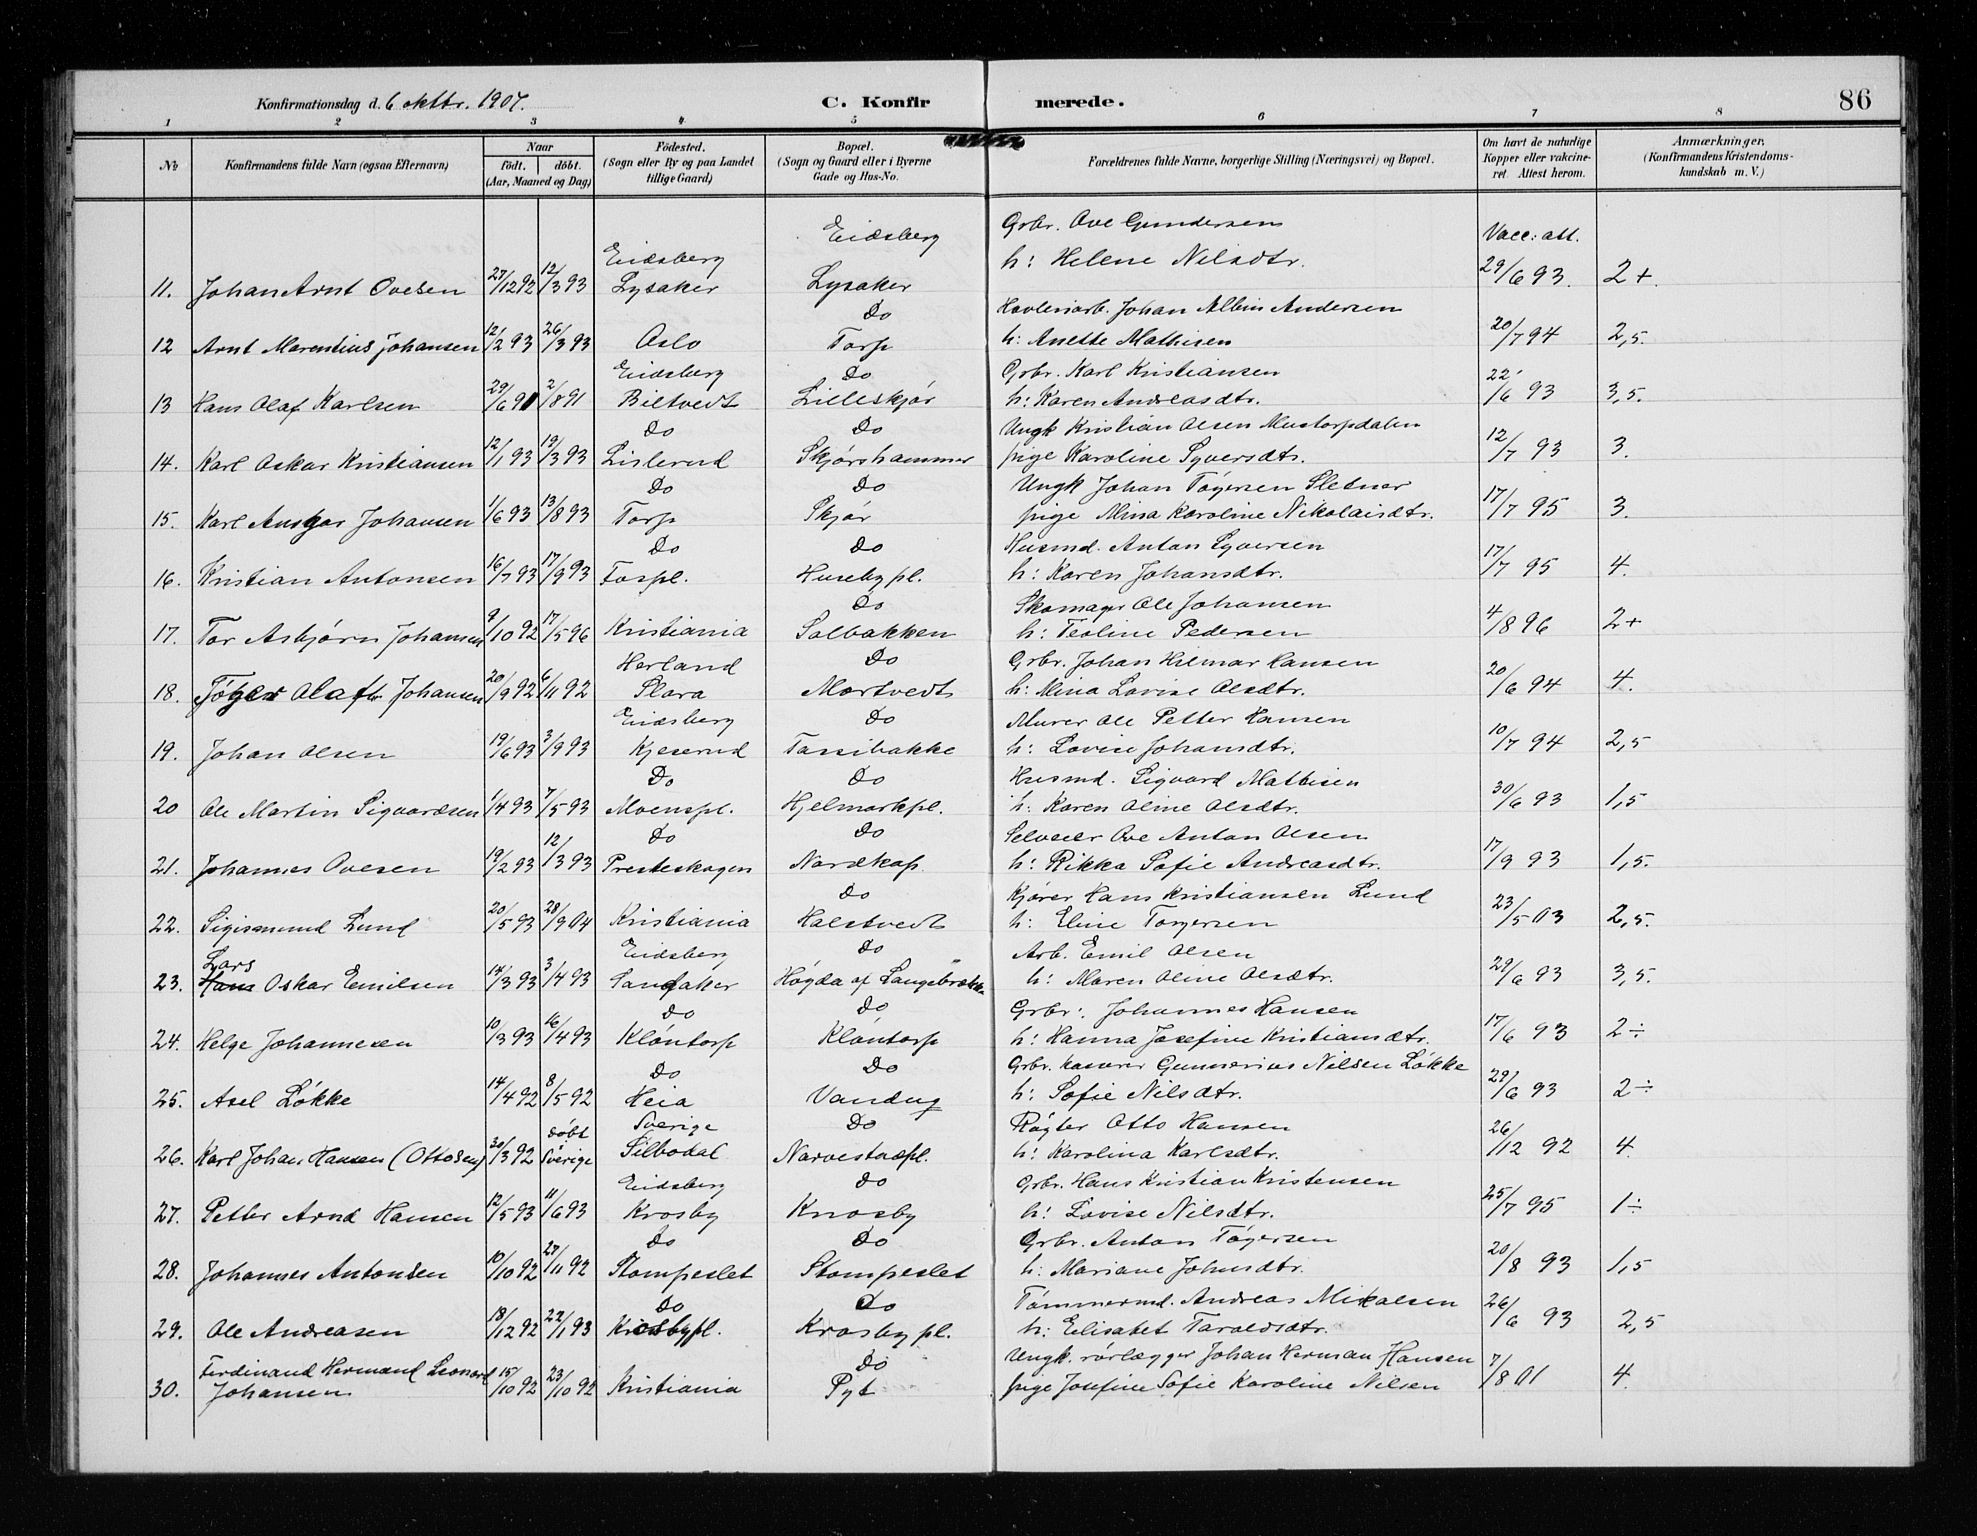 Konfirmationsdag d. 6 oktbr. 1907.
C. Konfirmerede.
86
1 2 3 4 5 6 7 8
No
Konfirmandens fulde Navn (ogsaa Efternavn)
Naar
födt. döbt.
(Aar, Maaned og Dag)
Födested.
(Sogn eller By og paa Landet
tillige Gaard)
Bopæl.
(Sogn og Gaard eller i Byerne
Gade og Hus-No.
Forældrenes fulde Navne, borgerlige Stilling (Næringsvei) og Bopæl.
Om havt de naturlige
Kopper eller vakcine-
ret. Attest herom.
Anmærkninger.
(Konfirmandens Kristendoms-
kundskab m. V.)
Eidsberg Eidsberg Grbr. Ove Gundersen Vacc: att.
11. Johan Arnt Ovesen 27/12 92 12/3 93 Lysaker Lysaker h: Helene Nilsdtr. 29/6 93. 2+.
Do Høvleriarb. Johan Albin Andersen
12 Arnt Marentius Johansen 12/2 93 26/3 93 Oslo Torp h: Anette Mathisen 20/7 94 2,5.
Eidsberg Do Grbr. Karl Kristiansen
13 Hans Olaf Karlsen 29/6 91 2/8 91 Biltvedt Lilleskjør h: Karen Andreasdtr. 22/6 93 3,5.
Do Do Ungk Kristian Olsen Mustorpdalen
14. Karl Oskar Kristiansen 12/1 93 19/3 93 Lislerud Skjørshammer pige Karoline Syversdtr. 12/7 93 3.
Do Do Ungk Johan Tøgersen Sletner
15. Karl Ansgar Johansen 1/6 93 13/8 93 Torp Skjør pige Mina Karoline Nikolaisdtr. 17/7 95 3.
Do Do Husmd. Anton Syversen
16. Kristian Antonsen 16/7 93 17/9 93 Fospl. Huseby pl. h: Karen Johansdtr. 17/7 95 4.
Do Skomager Ole Johansen
17. Tor Asbjørn Johansen 9/10 92 17/5 96 Kristiania Solbakken h: Teoline Pedersen 4/8 96 2+
Herland Do Grbr. Johan Hilmar Hansen
18. Tøger Olaf Johansen 20/9 92 6/11 92 Slora Mortvedt h: Mina Lovise Olsdtr. 20/6 94 4.
Eidsberg Do Murer Ole Petter Hansen
19. Johan Olsen 19/6 93 3/9 93 Kjeserud Tassibakke h: Lovise Johansdtr. 10/7 94 2,5
Do Do Husmd. Sigvard Mathisen
20 Ole Martin Sigvardsen 1/4 93 7/5 93 Moenspl. Hjelmarkpl. h: Karen Oline Olsdtr. 30/6 93 1,5
Do Do Selveier Ove Anton Olsen
21. Johannes Ovesen 19/2 93 12/3 93 Presteskogen Nordkap h: Rikka Sofie Andreasdtr. 17/9 93 1,5.
Do Kjører Hans Kristiansen Lund
22. Sigismund Lund 20/5 93 28/9 04 Kristiania Halstvedt h: Eline Torgersen 23/5 03 2,5.
Lars Eidsberg Do Arb. Emil Olsen
23. Hans Oskar Emilsen 14/3 93 3/4 93 Sandaker Høgda af h: Maren Oline Olsdtr. 29/6 93 3,5.
Do Do Grbr. Johannes Hansen
24. Helge Johannesen 10/3 93 16/4 93 Kløntorp Kløntorp h: Hanna Josefine Kristiansdtr. 17/6 93 2÷
Do Do Grbr. Kaserer Gunnerius Nilsen Løkke
25. Axel Løkke 14/4 92 8/5 92 Heia Vandug h: Sofie Nilsdtr. 29/6 93 2÷
døbt Sverige Do Røgter Otto Hansen
26. Karl Johan Hansen (Ottosen) 30/3 92 i Sverige Silbodal Narvestadpl. h: Karolina Karlsdtr. 26/12 92 4.
Eidsberg Do Grbr. Hans Kristian Kristensen
27. Petter Arnd Hansen 12/5 93 11/6 93 Krosby Krosby h: Lovise Nilsdtr. 25/7 95 1÷
Do Do Grbr. Anton Tøgersen
28. Johannes Antonsen 10/10 92 27/11 92 Stompeslet Stompeslet h: Mariane Johnsdtr. 20/8 93 1,5
Do Do Tømmermd. Andreas Mikalsen
29. Ole Andreasen 18/12 92 22/1 93 Krosbypl. Krosby pl. h: Elisabet Taraldsdtr. 26/6 93 2,5
Ferdinand Hermand Leonard Do Ungk. rørlægger Johan Herman Hansen
30. Johansen 15/10 92 23/10 92 Kristiania Pyt pige Josefine Sofie Karoline Nilsen 7/8 01 4.